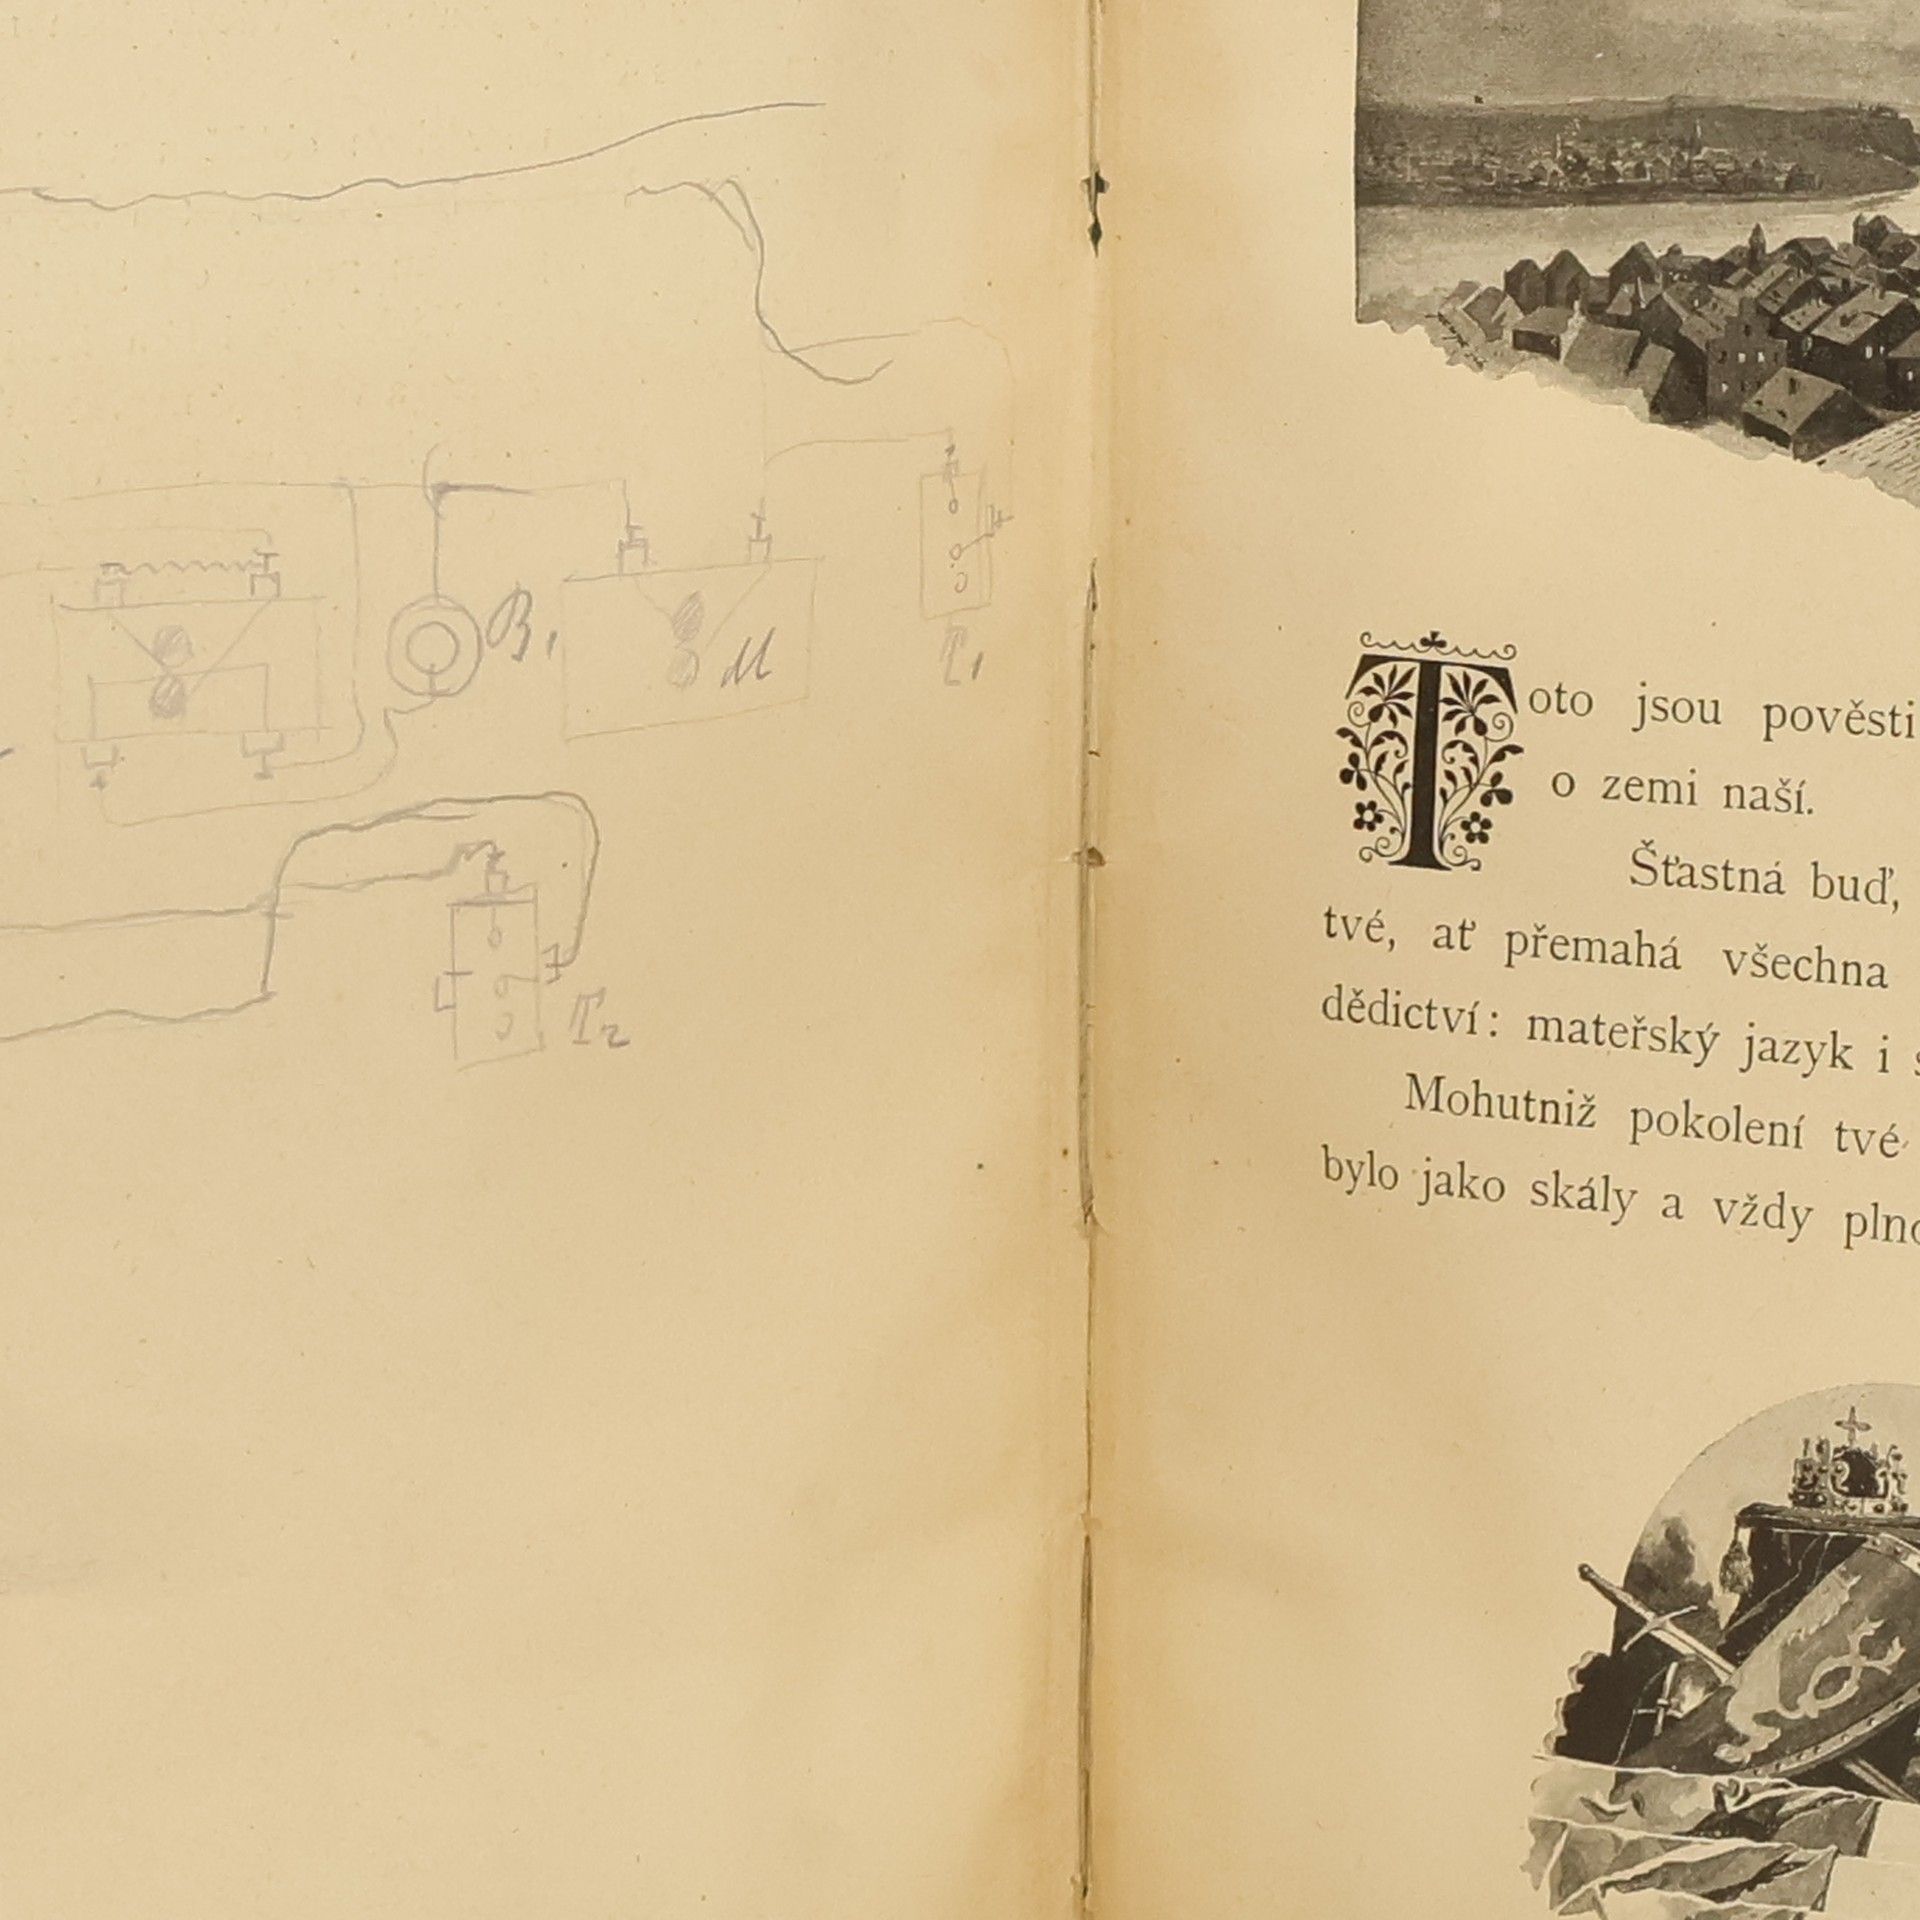 B1
M
T1
T2
Toto jsou pověsti
o zemi naší.
Šťastná buď,
tvé, ať přemahá všechna
dědictví: mateřský jazyk i s
Mohutniž pokolení tvé
bylo jako skály a vždy plno